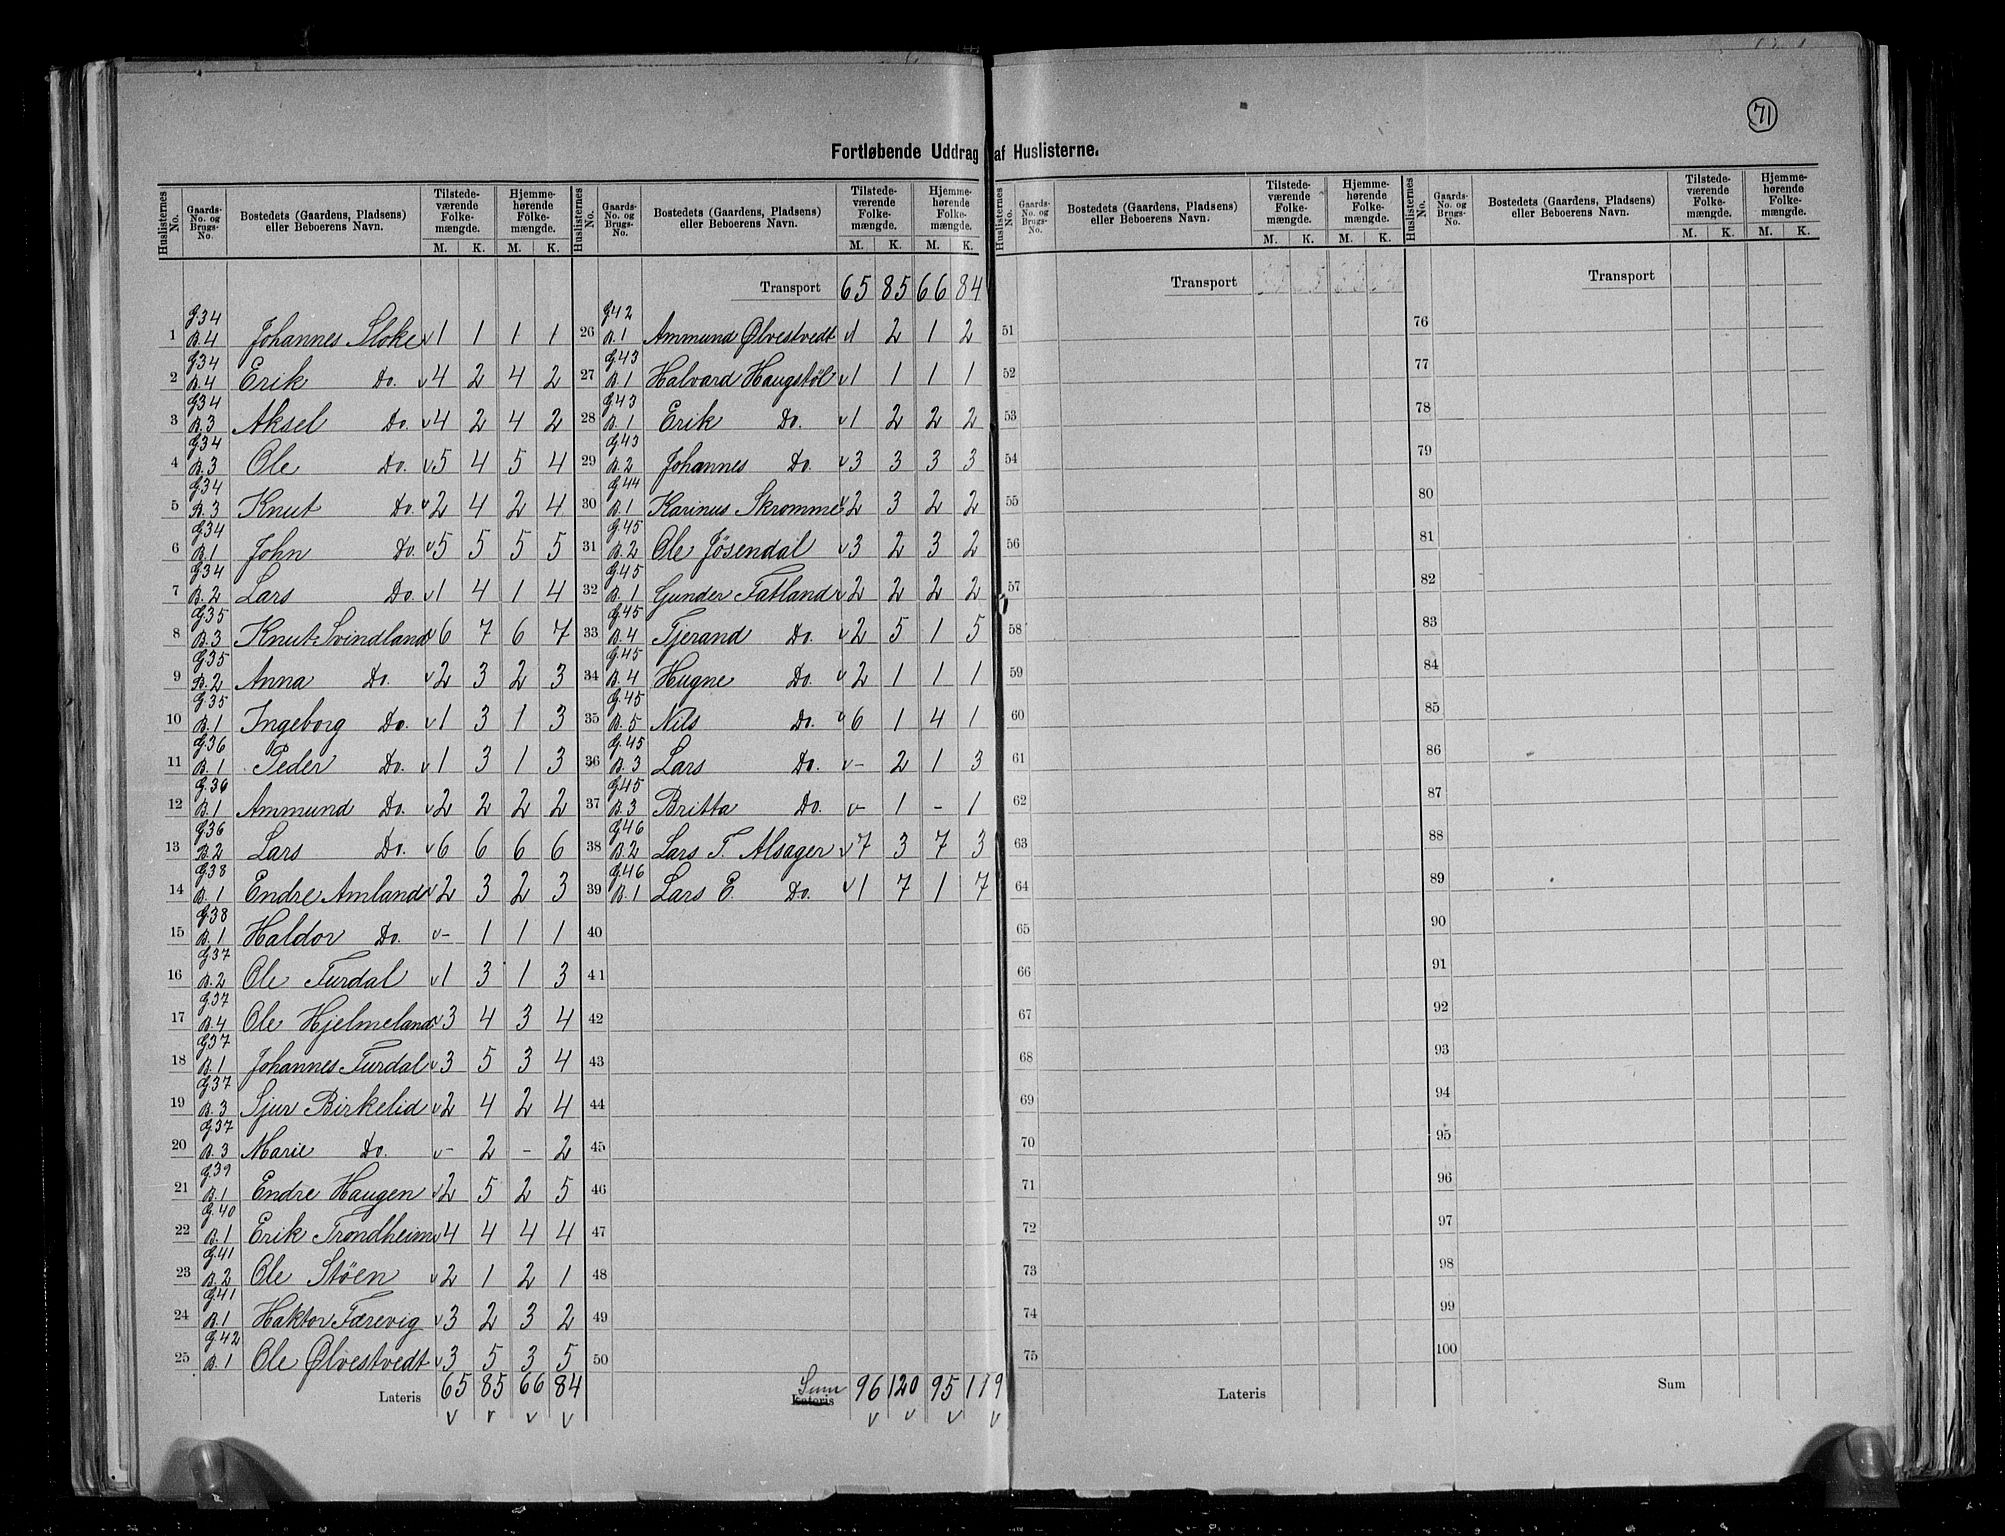 71
Fortløbende Uddrag af Huslisterne.
Huslisternes No. Gaards-No. og Brugs-No. Bostedets (Gaardens, Pladsens) eller Beboerens Navn. Tilstede-værende Folke-mængde. M. K. Hjemme-hørende Folke-mængde. M. K.
1 G.34 B.4 Johannes Sloke v 1 1 1 1
2 G.34 B.4 Erik Do. v 4 2 4 2
3 G.34 B.3 Aksel Do. v 4 2 4 2
4 G.34 B.3 Ole Do. v 5 4 5 4
5 G.34 B.3 Knut Do. v 2 4 2 4
6 G.34 B.1 John Do. v 5 5 5 5
7 G.34 B.2 Lars Do. v 1 4 1 4
8 G.35 B.3 Knut Svindland v 6 7 6 7
9 G.35 B.2 Anna Do. v 2 3 2 3
10 G.35 B.1 Ingeborg Do. v 1 3 1 3
11 G.36 B.1 Peder Do. v 1 3 1 3
12 G.36 B.1 Ammund Do. v 2 2 2 2
13 G.36 B.2 Lars Do. v 6 6 6 6
14 G.38 B.1 Endre Amland v 2 3 2 3
15 G.38 B.1 Haldor Do. v - 1 1 1
16 G.37 B.2 Ole Furdal v 1 3 1 3
17 G.37 B.4 Ole Hjelmeland v 3 4 3 4
18 G.37 B.1 Johannes Furdal v 3 5 3 4
19 G.37 B.3 Sjur Birkelid v 2 4 2 4
20 G.37 B.3 Marie Do. v - 2 - 2
21 G.39 B.1 Endre Haugen v 2 5 2 5
22 G.40 B.1 Erik Trondheim v 4 4 4 4
23 G.41 B.2 Ole Støen v 2 1 2 1
24 G.41 B.1 Haktor Færevig v 3 2 3 2
25 G.42 B.1 Ole Ølvestvedt v 3 5 3 5
Lateris 65 85 66 84
v v v v
Huslisternes No. Gaards-No. og Brugs-No. Bostedets (Gaardens, Pladsens) eller Beboerens Navn. Tilstede-værende Folke-mængde. M. K. Hjemme-hørende Folke-mængde. M. K.
Transport 65 85 66 84
26 G.42 B.1 Ammund Ølvestvedt v 1 2 1 2
27 G.43 B.1 Halvard Haugstøl v 1 1 1 1
28 G.43 B.1 Erik Do. v 1 2 2 2
29 G.43 B.2 Johannes Do. v 3 3 3 3
30 G.44 B.1 Karinus Skromme v 2 3 2 2
31 G.45 B.2 Ole Jøsendal v 3 2 3 2
32 G.45 B.1 Gunder Fatland v 2 2 2 2
33 G.45 B.4 Tjerand Do. v 2 5 1 5
34 G.45 B.4 Hugne Do. v 2 1 1 1
35 G.45 B.5 Nils Do. v 6 1 4 1
36 G.45 B.3 Lars Do. v - 2 1 3
37 G.45 B.3 Britta Do. v - 1 - 1
38 G.46 B.2 Lars T. Alsager v 7 3 7 3
39 G.46 B.1 Lars E. Do. v 1 7 1 7
40
41
42
43
44
45
46
47
48
49
50
Sum Lateris 96 120 95 119
v v v v
Huslisternes No. Gaards-No. og Brugs-No. Bostedets (Gaardens, Pladsens) eller Beboerens Navn. Tilstede-værende Folke-mængde. M. K. Hjemme-hørende Folke-mængde. M. K.
Transport
51
52
53
54
55
56
57
58
59
60
61
62
63
64
65
66
67
68
69
70
71
72
73
74
75
Lateris
Huslisternes No. Gaards-No. og Brugs-No. Bostedets (Gaardens, Pladsens) eller Beboerens Navn. Tilstede-værende Folke-mængde. M. K. Hjemme-hørende Folke-mængde. M. K.
Transport
76
77
78
79
80
81
82
83
84
85
86
87
88
89
90
91
92
93
94
95
96
97
98
99
100
Sum